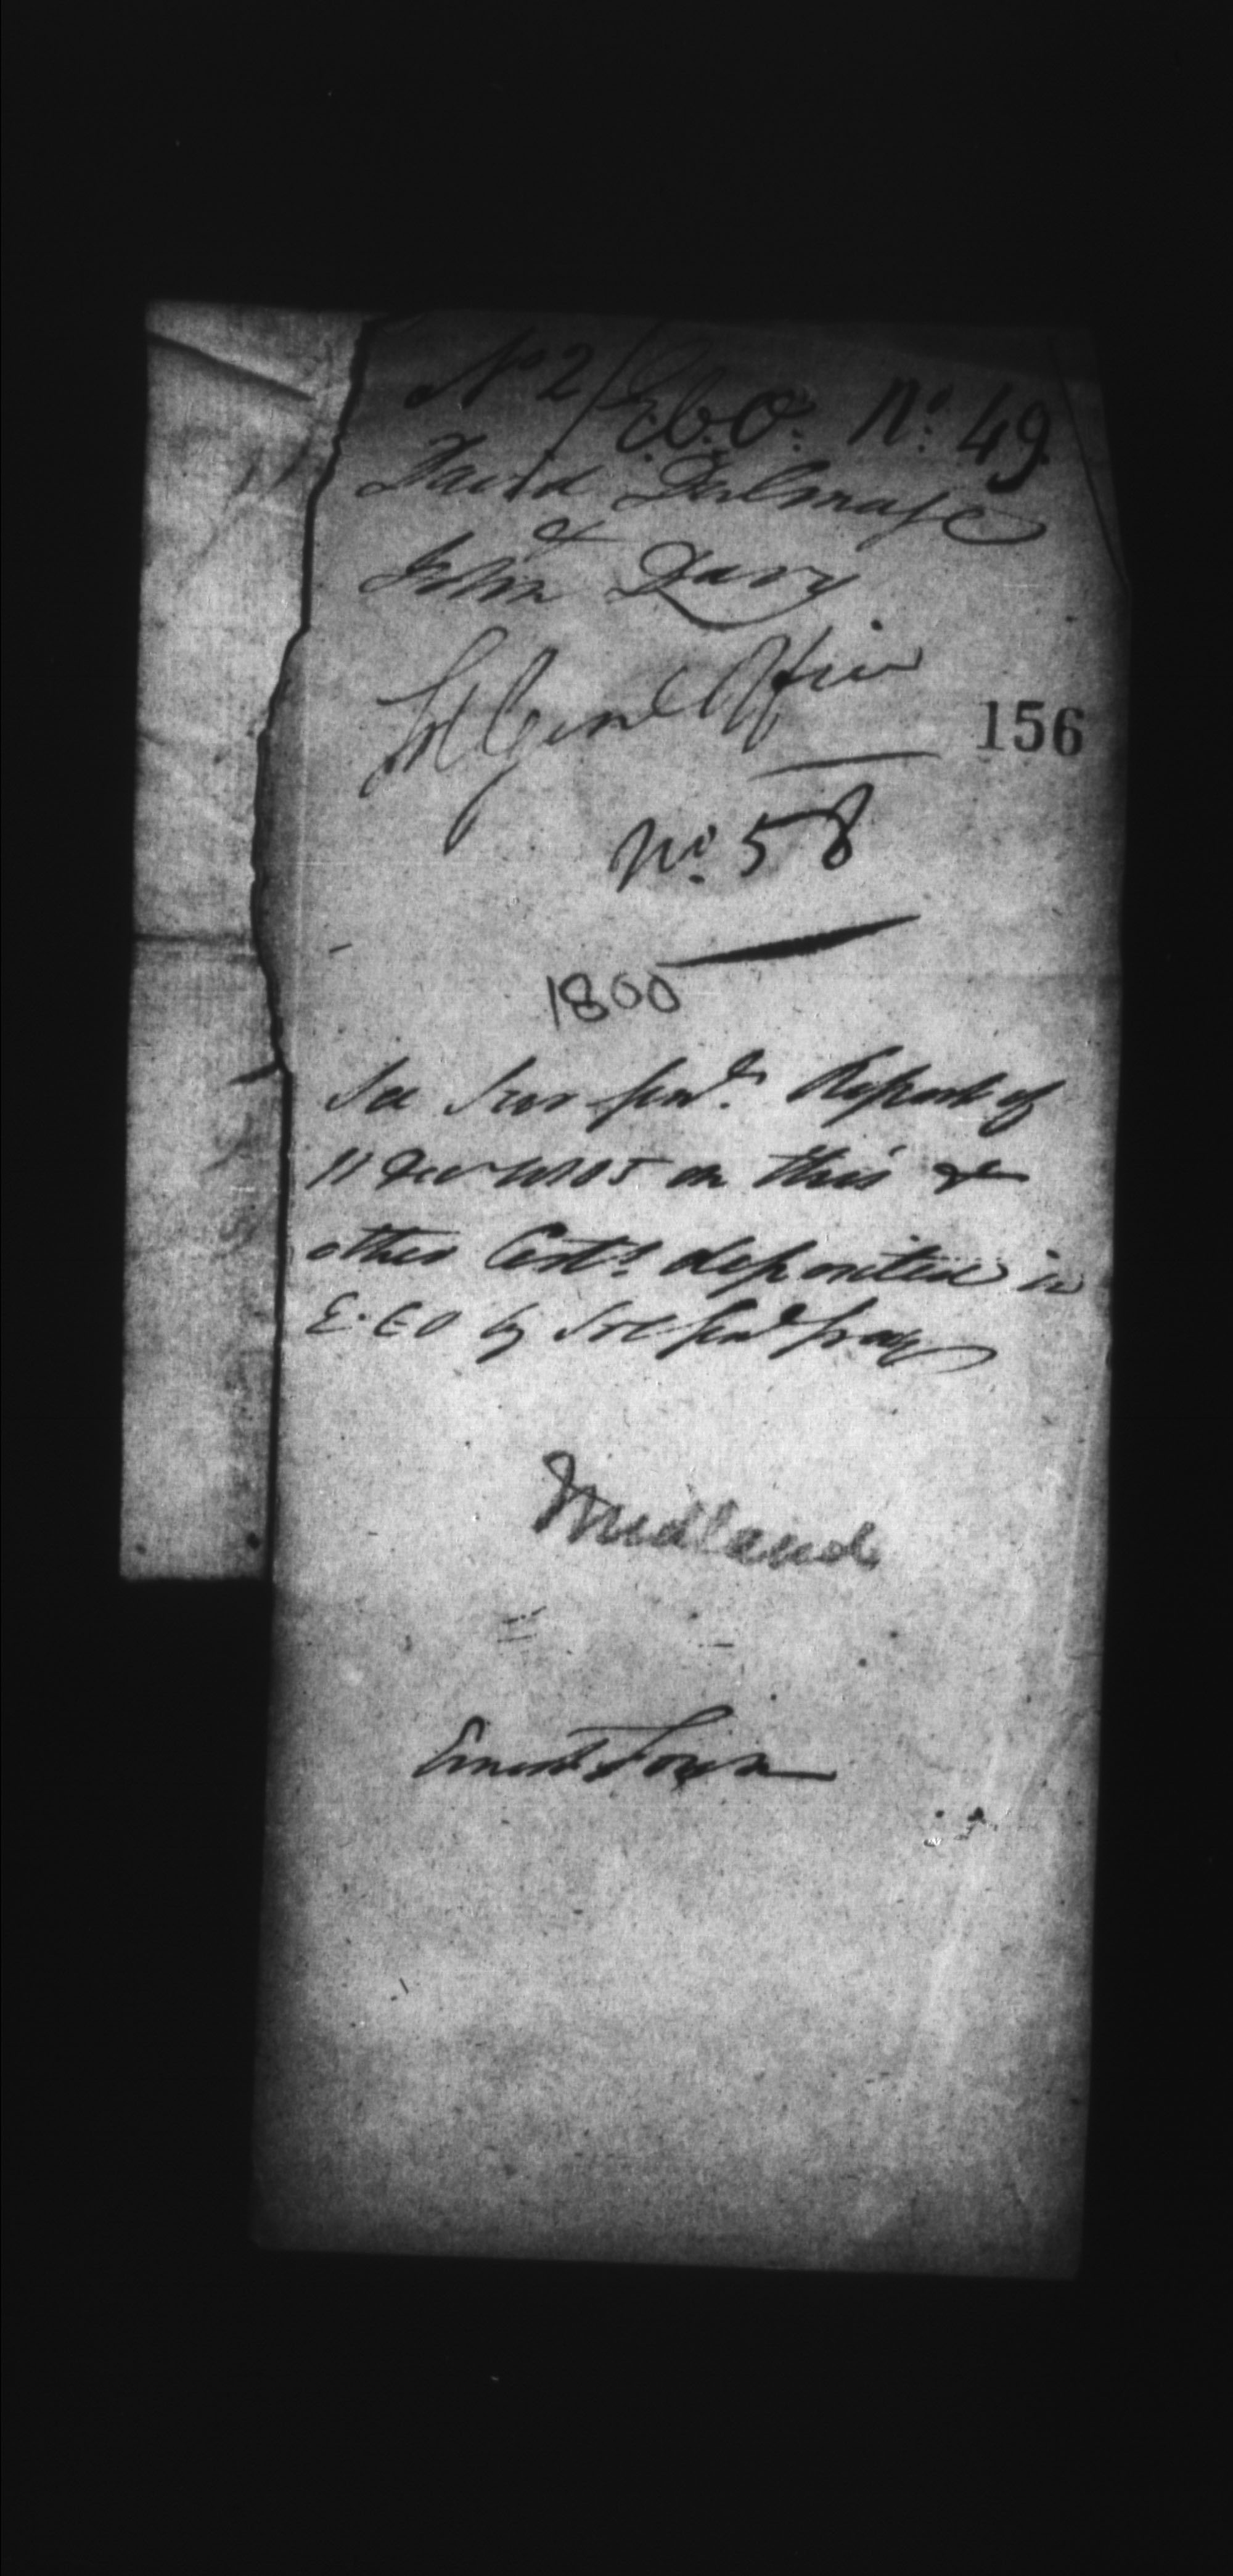 No 2/ E.C.O. No. 49
David Dulmage
&
John Davy
Sol Genl Office
156
No. 58
1800
See Surv Genl. Report of
11 Decr 1805 on this &
other Certs. deposited in
E.C.O by Sol Genl Gray
Midland
Ernest Town